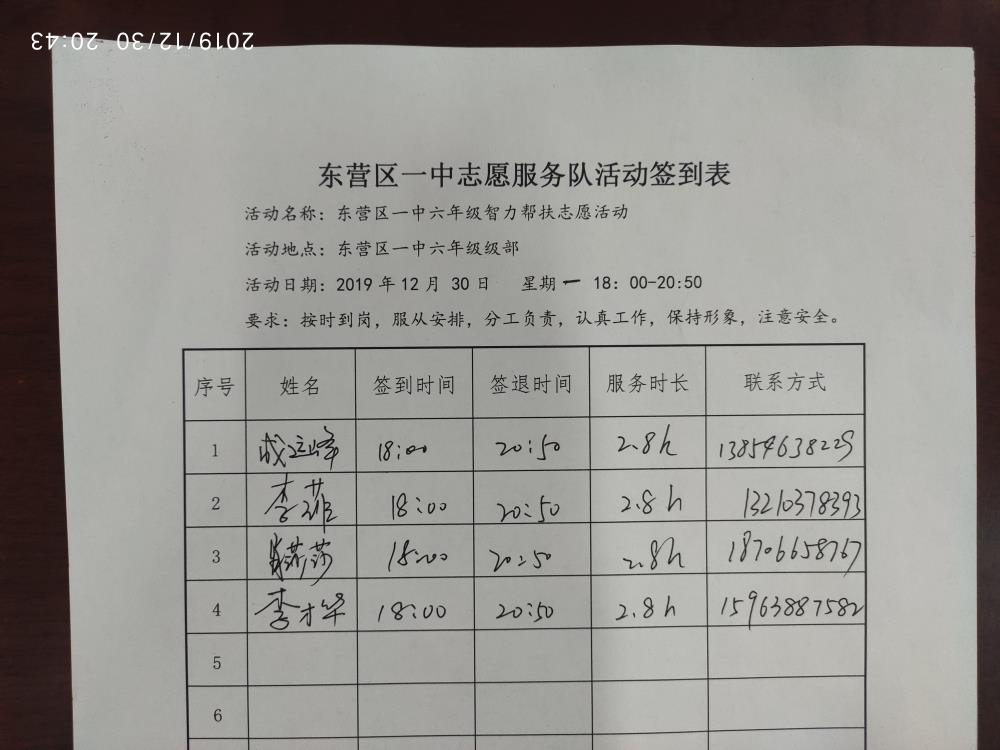 2019/12/30 20:43
东营区一中志愿服务队活动签到表
活动名称：东营区一中六年级智力帮扶志愿活动
活动地点：东营区一中六年级级部
活动日期：2019 年 12 月 30 日 星期一 18：00-20:50
要求：按时到岗，服从安排，分工负责，认真工作，保持形象，注意安全。
序号 姓名 签到时间 签退时间 服务时长 联系方式
1 成立峰 18:00 20:50 2.8h 13854638229
2 李 18:00 20:50 2.8h 13210378393
3 18:00 20:50 2.8h 18706658767
4 李才华 18:00 20:50 2.8h 15963887582
5
6